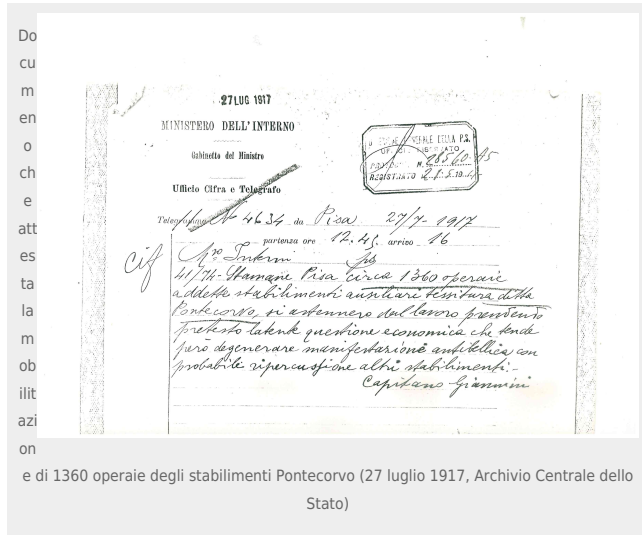 Do
cu
m
en
o
ch
e
att
es
ta
la
m
ob
ilit
azi
on
e di 1360 operaie degli stabilimenti Pontecorvo (27 luglio 1917, Archivio Centrale dello
Stato)
27 LUG 1917
MINISTERO DELL'INTERNO
Gabinetto del Ministro
Ufficio Cifra e Telegrafo
Telegramma N 4634 da Pisa 27/7-1917
partenza ore 12.45 arrivo 16
cif
Mro Interni ps
41/74-Stamane Pisa circa 1360 operaie
addette stabilimenti ausiliari tessitura ditta
Pontecorvo, si astennero dal lavoro prendendo
pretesto latente questione economica che tende
però degenerare manifestazione antibellica con
probabile ripercussione altri stabilimenti.-
Capitano Giannini
P.S.
N. 28560
REGISTRATO